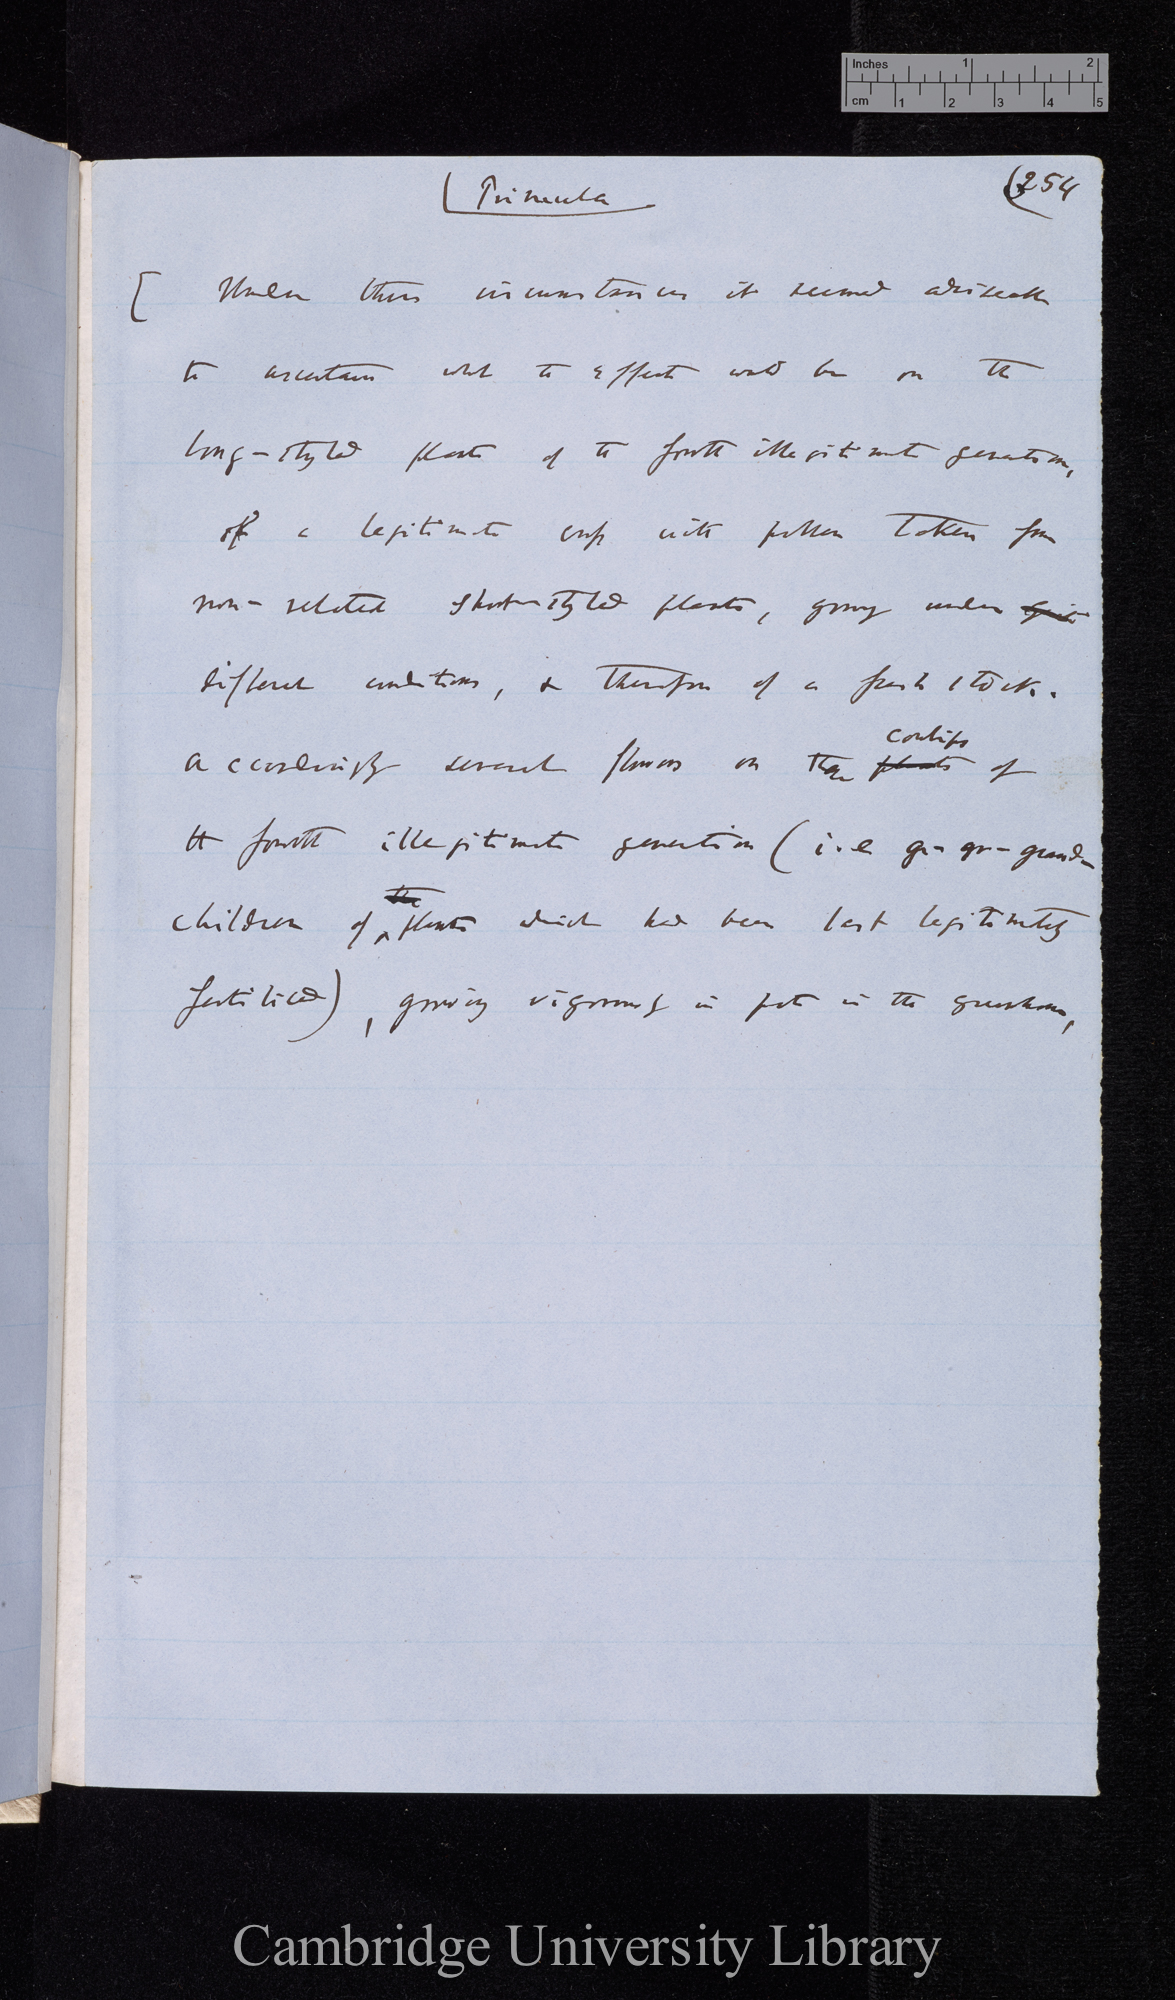 Inches 1 2
cm 1 2 3 4 5
Primula
(254
[ Under these circumstances it seemed adviseable
to ascertain what the effects would be on the
long-styled plants of the fourth illegitimate generation,
of a legitimate cross with pollen taken from
non-related short-styled plants, growing under quite
different conditions, & therefore of a fresh stock.
cowslips
Accordingly several flowers on the plants of
the fourth illegitimate generation (i.e gr-gr-grand-
the
children of plants which had been last legitimately
fertilised), growing vigorously in pots in the greenhouse,
Cambridge University Library